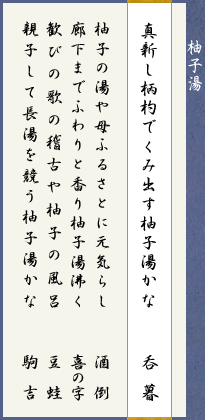 柚子湯
真新し柄杓でくみ出す柚子湯かな 呑暮
柚子の湯や母ふるさとに元気らし 酒倒
廊下までふわりと香り柚子湯沸く 喜の字
歓びの歌の稽古や柚子の風呂 豆蛙
親子して長湯を競う柚子湯かな 駒吉